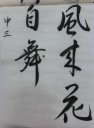 風來花
自舞
中三